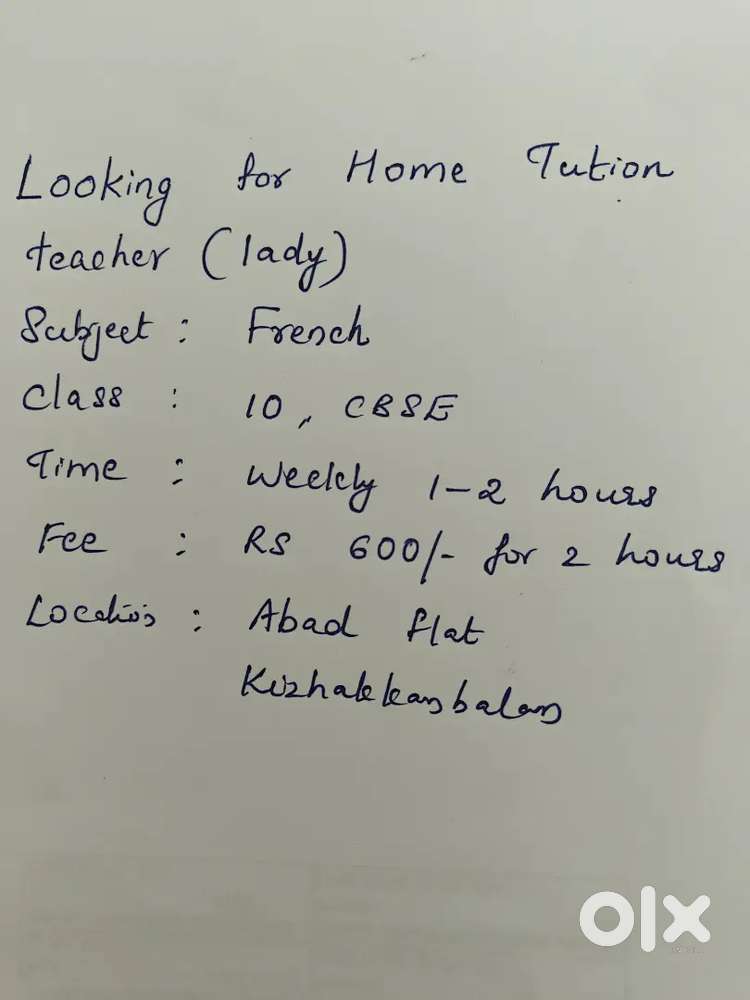 Looking for Home Tution
teacher (lady)
Subject : French
Class : 10, CBSE
Time : Weekly 1-2 hours
Fee : RS 600/- for 2 hours
Location : Abad flat
Kizhakkambalam
olx